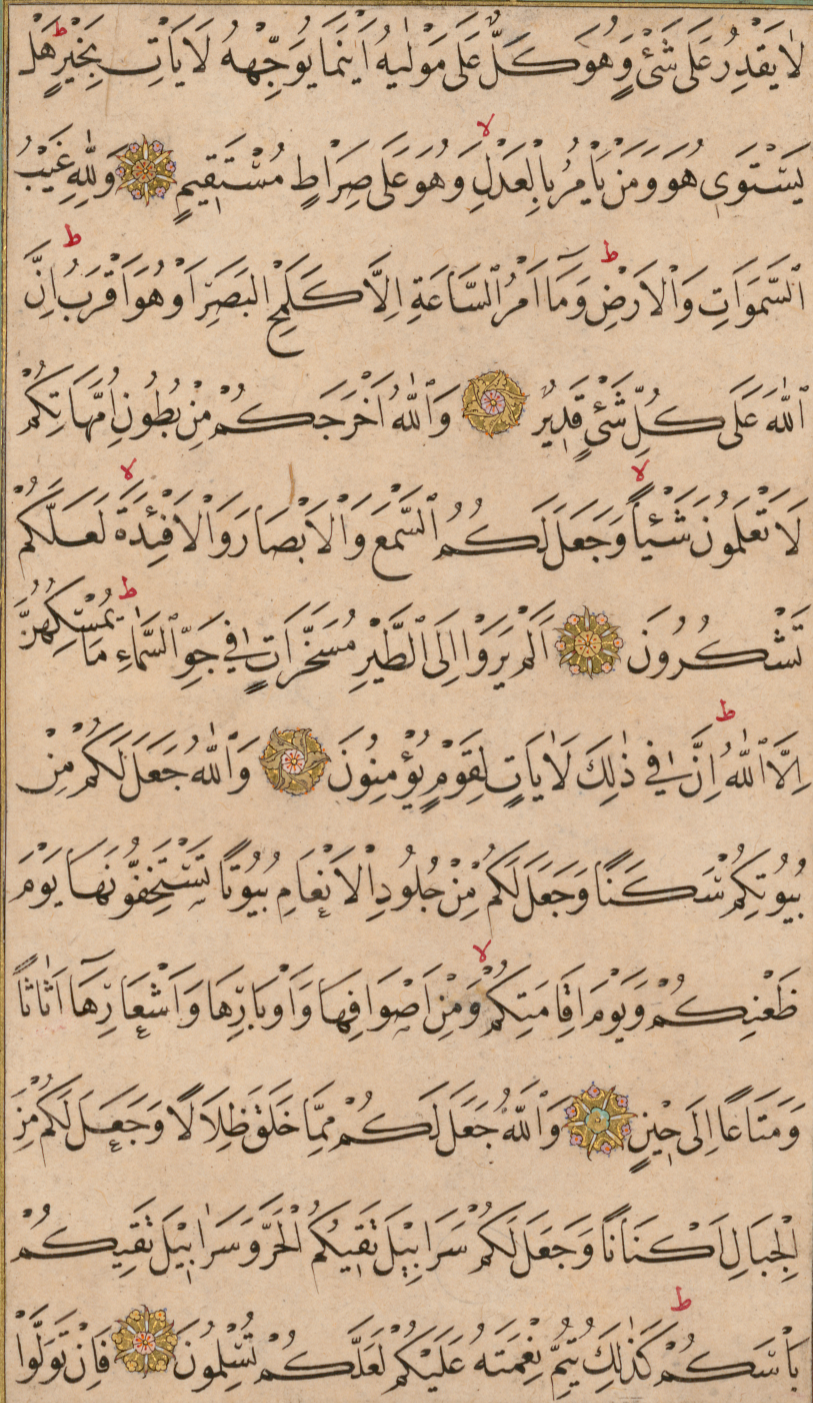 لَا يَقْدِرُ عَلَى شَيْءٍ وَهُوَ كَلٌّ عَلَى مَوْلٰيهُ اَيْنَمَا يُوَجِّهْهُ لَا يَاْتِ بِخَيْرٍ ط هَلْ
يَسْتَوِي هُوَ وَمَنْ يَاْمُرُ بِالْعَدْلِ لا وَهُوَ عَلَى صِرَاطٍ مُسْتَقِيمٍ وَلِلّٰهِ غَيْبُ
السَّمَوَاتِ وَالْاَرْضِ ط وَمَا اَمْرُ السَّاعَةِ اِلَّا كَلَمْحِ الْبَصَرِ اَوْ هُوَ اَقْرَبُ ط اِنَّ
اللّٰهَ عَلَى كُلِّ شَيْءٍ قَدِيرٌ وَاللّٰهُ اَخْرَجَكُمْ مِنْ بُطُونِ اُمَّهَاتِكُمْ
لَا تَعْلَمُونَ شَيْئاً لا وَجَعَلَ لَكُمُ السَّمْعَ وَالْاَبْصَارَ وَالْاَفْئِدَةَ لا لَعَلَّكُمْ
تَشْكُرُونَ اَلَمْ يَرَوْا اِلَى الطَّيْرِ مُسَخَّرَاتٍ فِي جَوِّ السَّمَاءِ مَا يُمْسِكُهُنَّ ط
اِلَّا اللّٰهُ ط اِنَّ فِي ذٰلِكَ لَاٰيَاتٍ لِقَوْمٍ يُؤْمِنُونَ وَاللّٰهُ جَعَلَ لَكُمْ مِنْ
بُيُوتِكُمْ سَكَنًا وَجَعَلَ لَكُمْ مِنْ جُلُودِ الْاَنْعَامِ بُيُوتًا تَسْتَخِفُّونَهَا يَوْمَ
ظَعْنِكُمْ وَيَوْمَ اِقَامَتِكُمْ لا وَمِنْ اَصْوَافِهَا وَاَوْبَارِهَا وَاَشْعَارِهَا اَثَاثًا
وَمَتَاعًا اِلَى حِينٍ وَاللّٰهُ جَعَلَ لَكُمْ مِمَّا خَلَقَ ظِلَالًا وَجَعَلَ لَكُمْ مِنَ
الْجِبَالِ اَكْنَانًا وَجَعَلَ لَكُمْ سَرَابِيلَ تَقِيكُمُ الْحَرَّ وَسَرَابِيلَ تَقِيكُمْ
بَاْسَكُمْ ط كَذٰلِكَ يُتِمُّ نِعْمَتَهُ عَلَيْكُمْ لَعَلَّكُمْ تُسْلِمُونَ فَاِنْ تَوَلَّوْا